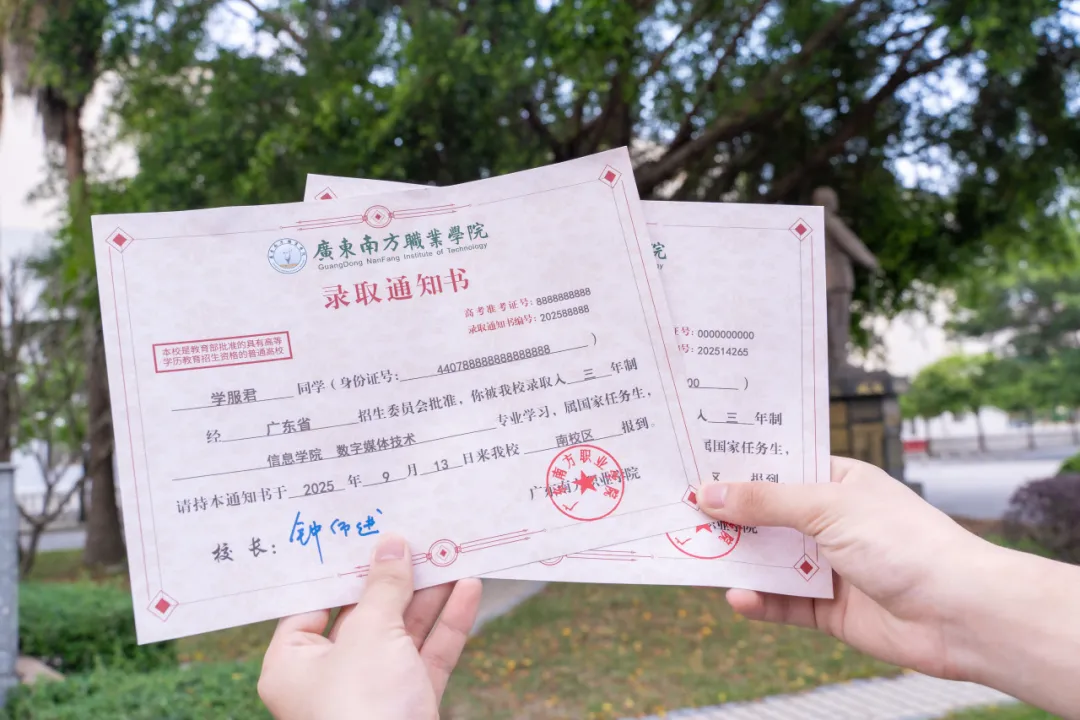 廣東南方職業學院
GuangDong NanFang Institute of Technology
录取通知书
高考准考证号: 8888888888
录取通知书编号: 202588888
本校是教育部批准的具有高等
学历教育招生资格的普通高校
学服君 同学 ( 身份证号: 440788888888888888 )
经 广东省 招生委员会批准, 你被我校录取入 三 年制
信息学院 数字媒体技术 专业学习, 属国家任务生,
请持本通知书于 2025 年 9 月 13 日来我校 南校区 报到.
广东南方职业学院
广东南方职业学院
校 长:
院
证号: 0000000000
号: 202514265
00 )
入 三 年制
属国家任务生,
区 报到
职业学院